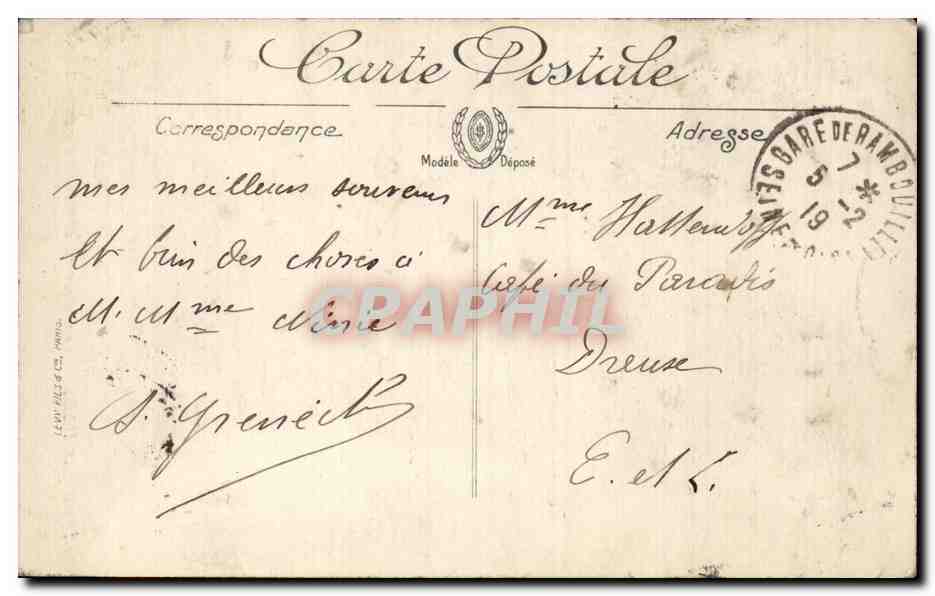 Carte Postale
Correspondance
Modèle Déposé
Adresse
GARE DE RAMBOUILLET
5 7
19 12
mes meilleurs souvenirs
et bien des choses à
M. Mme
Mme
Café du Paradis
Dreux
E. et L.
LEVY FILS & Cie, PARIS.
CPAPHIL